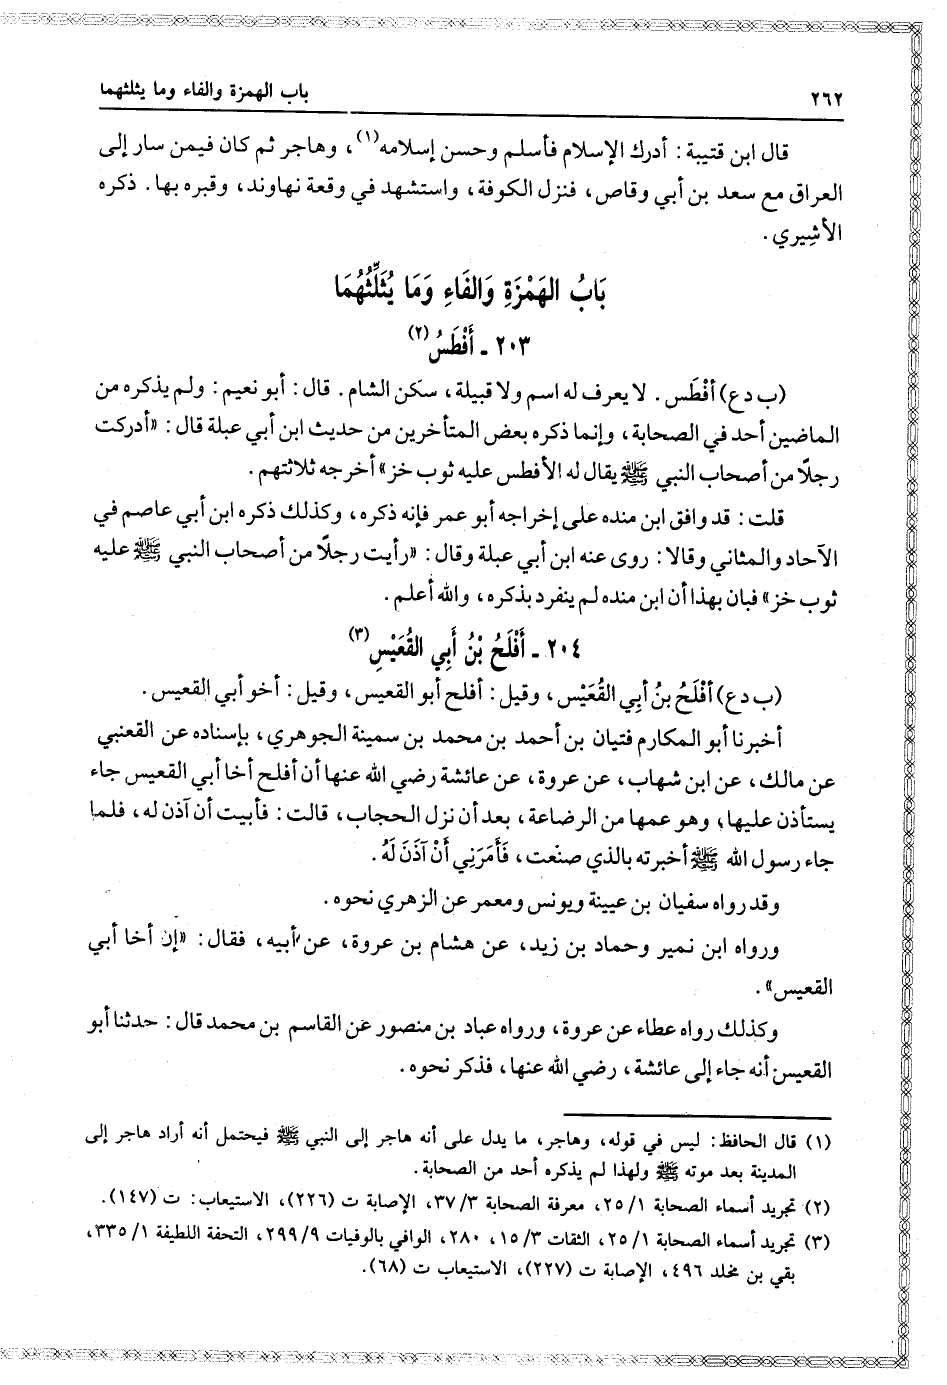 ٢٦٢
باب الهمزة والفاء وما يثلثهما
قال ابن قتيبة: أدرك الإسلام فأسلم وحسن إسلامه(١)، وهاجر ثم كان فيمن سار إلى
العراق مع سعد بن أبي وقاص، فنزل الكوفة، واستشهد في وقعة نهاوند، وقبره بها. ذكره
الأشِيري.
بَابُ الهَمْزَةِ وَالفَاءِ وَمَا يُثَلِّثُهُمَا
٢٠٣ ـ أَفْطَسُ(٢)
(ب د ع) أفْطَس. لا يعرف له اسم ولا قبيلة، سكن الشام. قال: أبو نعيم: ولم يذكره من
الماضين أحد في الصحابة، وإنما ذكره بعض المتأخرين من حديث ابن أبي عبلة قال: «أدركت
رجلًا من أصحاب النبي ﷺ يقال له الأفطس عليه ثوب خز» أخرجه ثلاثتهم.
قلت: قد وافق ابن منده على إخراجه أبو عمر فإنه ذكره، وكذلك ذكره ابن أبي عاصم في
الآحاد والمثاني وقالا: روى عنه ابن أبي عبلة وقال: «رأيت رجلًا من أصحاب النبي ﷺ عليه
ثوب خز» فبان بهذا أن ابن منده لم ينفرد بذكره، والله أعلم.
٢٠٤ ـ أَفْلَحُ بْنُ أَبِي القُعَيْسِ(٣)
(ب د ع) أفْلَحُ بنُ أبِي القُعَيْس، وقيل: أفلح أبو القعيس، وقيل: أخو أبي القعيس.
أخبرنا أبو المكارم فتيان بن أحمد بن محمد بن سمينة الجوهري، بإسناده عن القعنبي
عن مالك، عن ابن شهاب، عن عروة، عن عائشة رضي الله عنها أن أفلح أخا أبي القعيس جاء
يستأذن عليها، وهو عمها من الرضاعة، بعد أن نزل الحجاب، قالت: فأبيت أن آذن له، فلما
جاء رسول الله ﷺ أخبرته بالذي صنعت، فَأَمَرَنِي أَنْ آذَنَ لَهُ.
وقد رواه سفيان بن عيينة ويونس ومعمر عن الزهري نحوه.
ورواه ابن نمير وحماد بن زيد، عن هشام بن عروة، عن أبيه، فقال: «إن أخا أبي
القعيس».
وكذلك رواه عطاء عن عروة، ورواه عباد بن منصور عن القاسم بن محمد قال: حدثنا أبو
القعيس أنه جاء إلى عائشة، رضي الله عنها، فذكر نحوه.
(١) قال الحافظ: ليس في قوله، وهاجر، ما يدل على أنه هاجر إلى النبي ﷺ فيحتمل أنه أراد هاجر إلى
المدينة بعد موته ﷺ ولهذا لم يذكره أحد من الصحابة.
(٢) تجريد أسماء الصحابة ١/ ٢٥، معرفة الصحابة ٣/ ٣٧، الإصابة ت (٢٢٦)، الاستيعاب: ت (١٤٧).
(٣) تجريد أسماء الصحابة ١/ ٢٥، الثقات ٣/ ١٥، ٢٨٠، الوافي بالوفيات ٩/ ٢٩٩، التحفة اللطيفة ١/ ٣٣٥،
بقي بن مخلد ٤٩٦، الإصابة ت (٢٢٧)، الاستيعاب ت (٦٨).